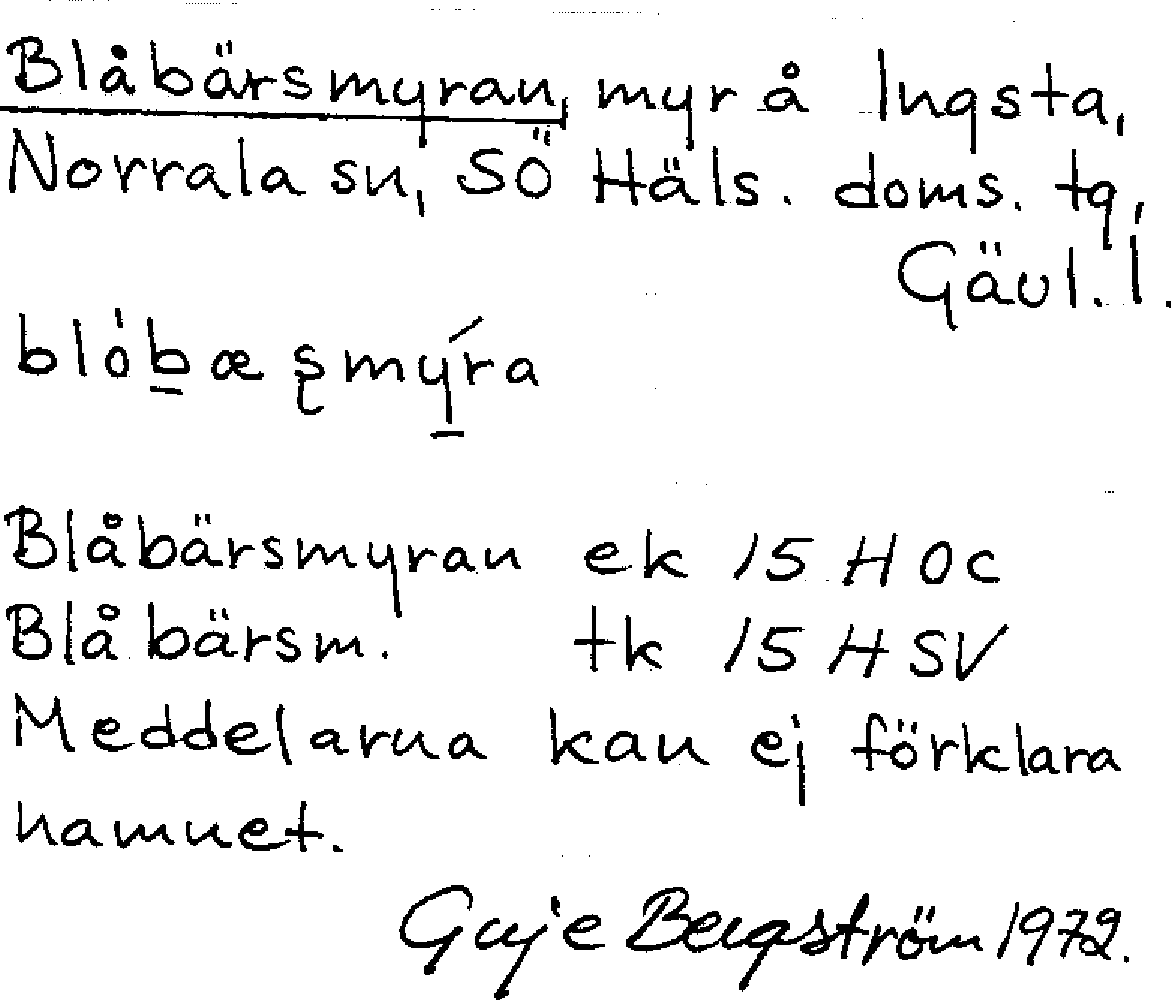 Blåbärsmyran, myr å Ingsta,
Norrala sn, SÖ Häls. doms. tg,
Gävl. l.
blóbæșmýra
Blåbärsmyran ek 15 H 0c
Blåbärsm. tk 15 H SV
Meddelarna kan ej förklara
namnet.
Bergström 1972.